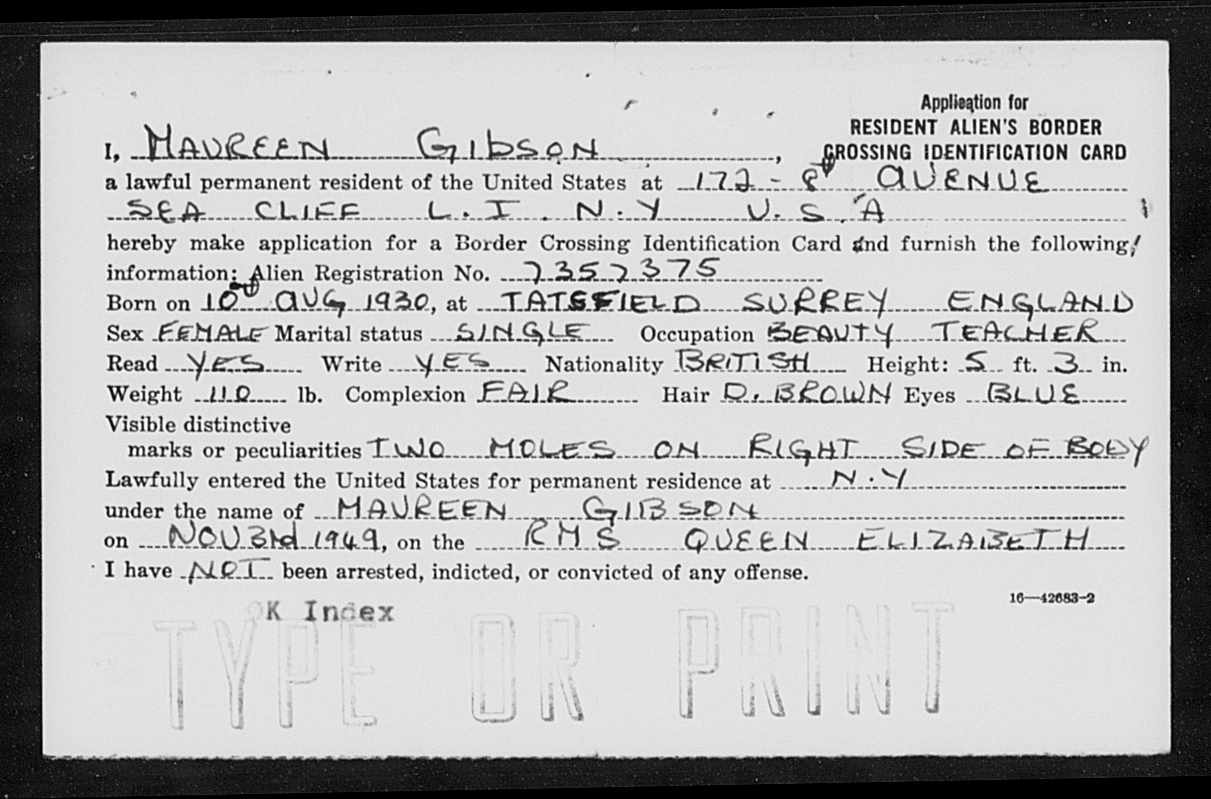 Application for
RESIDENT ALIEN'S BORDER
CROSSING IDENTIFICATION CARD
I, MAUREEN GIBSON,
a lawful permanent resident of the United States at 172 - 8th AVENUE
SEA CLIFF L.I. N.Y U.S.A
hereby make application for a Border Crossing Identification Card and furnish the following
information: Alien Registration No. 7357375
Born on 10th AUG 1930, at TATSFIELD SURREY ENGLAND
Sex FEMALE Marital status SINGLE Occupation BEAUTY TEACHER
Read YES Write YES Nationality BRITISH Height: 5 ft. 3 in.
Weight 110 lb. Complexion FAIR Hair D. BROWN Eyes BLUE
Visible distinctive
marks or peculiarities TWO MOLES ON RIGHT SIDE OF BODY
Lawfully entered the United States for permanent residence at N.Y
under the name of MAUREEN GIBSON
on NOV 3rd 1949, on the RMS QUEEN ELIZABETH
I have NOT been arrested, indicted, or convicted of any offense.
16—42683-2
OK Index
TYPE OR PRINT